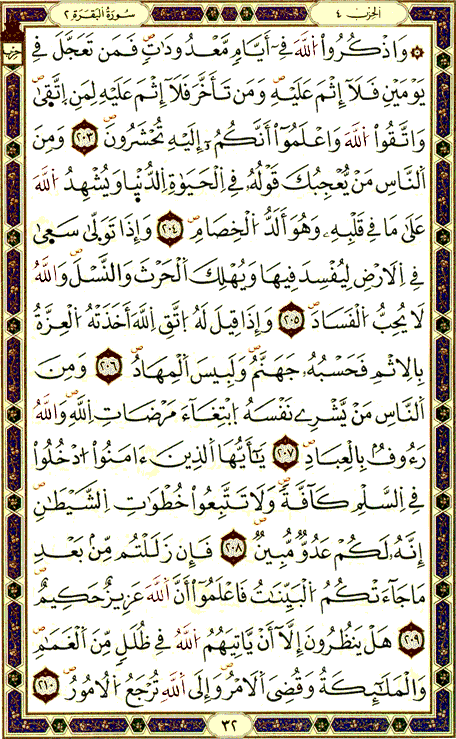 الحزب ٤
سورة البقرة ٢
۞ وَاذْكُرُواْ اللَّهَ فِےٓ أَيَّامٖ مَّعْدُودَٰتٖۖ فَمَن تَعَجَّلَ فِے
يَوْمَيْنِ فَلَآ إِثْمَ عَلَيْهِۖ وَمَن تَأَخَّرَ فَلَآ إِثْمَ عَلَيْهِ لِمَنِ اِتَّقٜيٰۖ
وَاتَّقُواْ اللَّهَ وَاعْلَمُوٓاْ أَنَّكُمُۥٓ إِلَيْهِ تُحْشَرُونَۖ ٢٠٣ وَمِنَ
اَلنَّاسِ مَنْ يُّعْجِبُكَ قَوْلُهُۥ فِے اِلْحَيَوٰةِ اِلدُّنْي۪ا وَيُشْهِدُ اللَّهَ
عَلَىٰ مَا فِے قَلْبِهِۦ وَهُوَ أَلَدُّ اُلْخِصَامِۖ ٢٠٤ وَإِذَا تَوَلّ۪يٰ سَع۪يٰ
فِے اِلَارْضِ لِيُفْسِدَ فِيهَا وَيُهْلِكَ اَلْحَرْثَ وَالنَّسْلَۖ وَاللَّهُ
لَا يُحِبُّ اُلْفَسَادَۖ ٢٠٥ وَإِذَا قِيلَ لَهُ اُتَّقِ اِللَّهَ أَخَذَتْهُ اُلْعِزَّةُ
بِالِاثْمِۖ فَحَسْبُهُۥ جَهَنَّمُۖ وَلَبِيسَ اَلْمِهَادُۖ ٢٠٦ وَمِنَ
اَلنَّاسِ مَنْ يَّشْرِے نَفْسَهُ اُبْتِغَآءَ مَرْضَاتِ اِللَّهِۖ وَاللَّهُ
رَءُوفُۢ بِالْعِبَادِۖ ٢٠٧ يَٰٓأَيُّهَا اَلذِينَ ءَامَنُواْ اُدْخُلُواْ
فِے اِلسَّلْمِ كَآفَّةٗۖ وَلَا تَتَّبِعُواْ خُطْوَٰتِ اِلشَّيْطَٰنِۖ
إِنَّهُۥ لَكُمْ عَدُوّٞ مُّبِينٞۖ ٢٠٨ فَإِن زَلَلْتُم مِّنۢ بَعْدِ
مَا جَآءَتْكُمُ اُلْبَيِّنَٰتُ فَاعْلَمُوٓاْ أَنَّ اَللَّهَ عَزِيزٌ حَكِيمٌۖ
٢٠٩ هَلْ يَنظُرُونَ إِلَّآ أَنْ يَّاتِيَهُمُ اُللَّهُ فِے ظُلَلٖ مِّنَ اَلْغَمَٰمِ
وَالْمَلَٰٓئِكَةُ وَقُضِيَ اَلَامْرُۖ وَإِلَى اَللَّهِ تُرْجَعُ اُلُامُورُۖ ٢١٠
٣٢